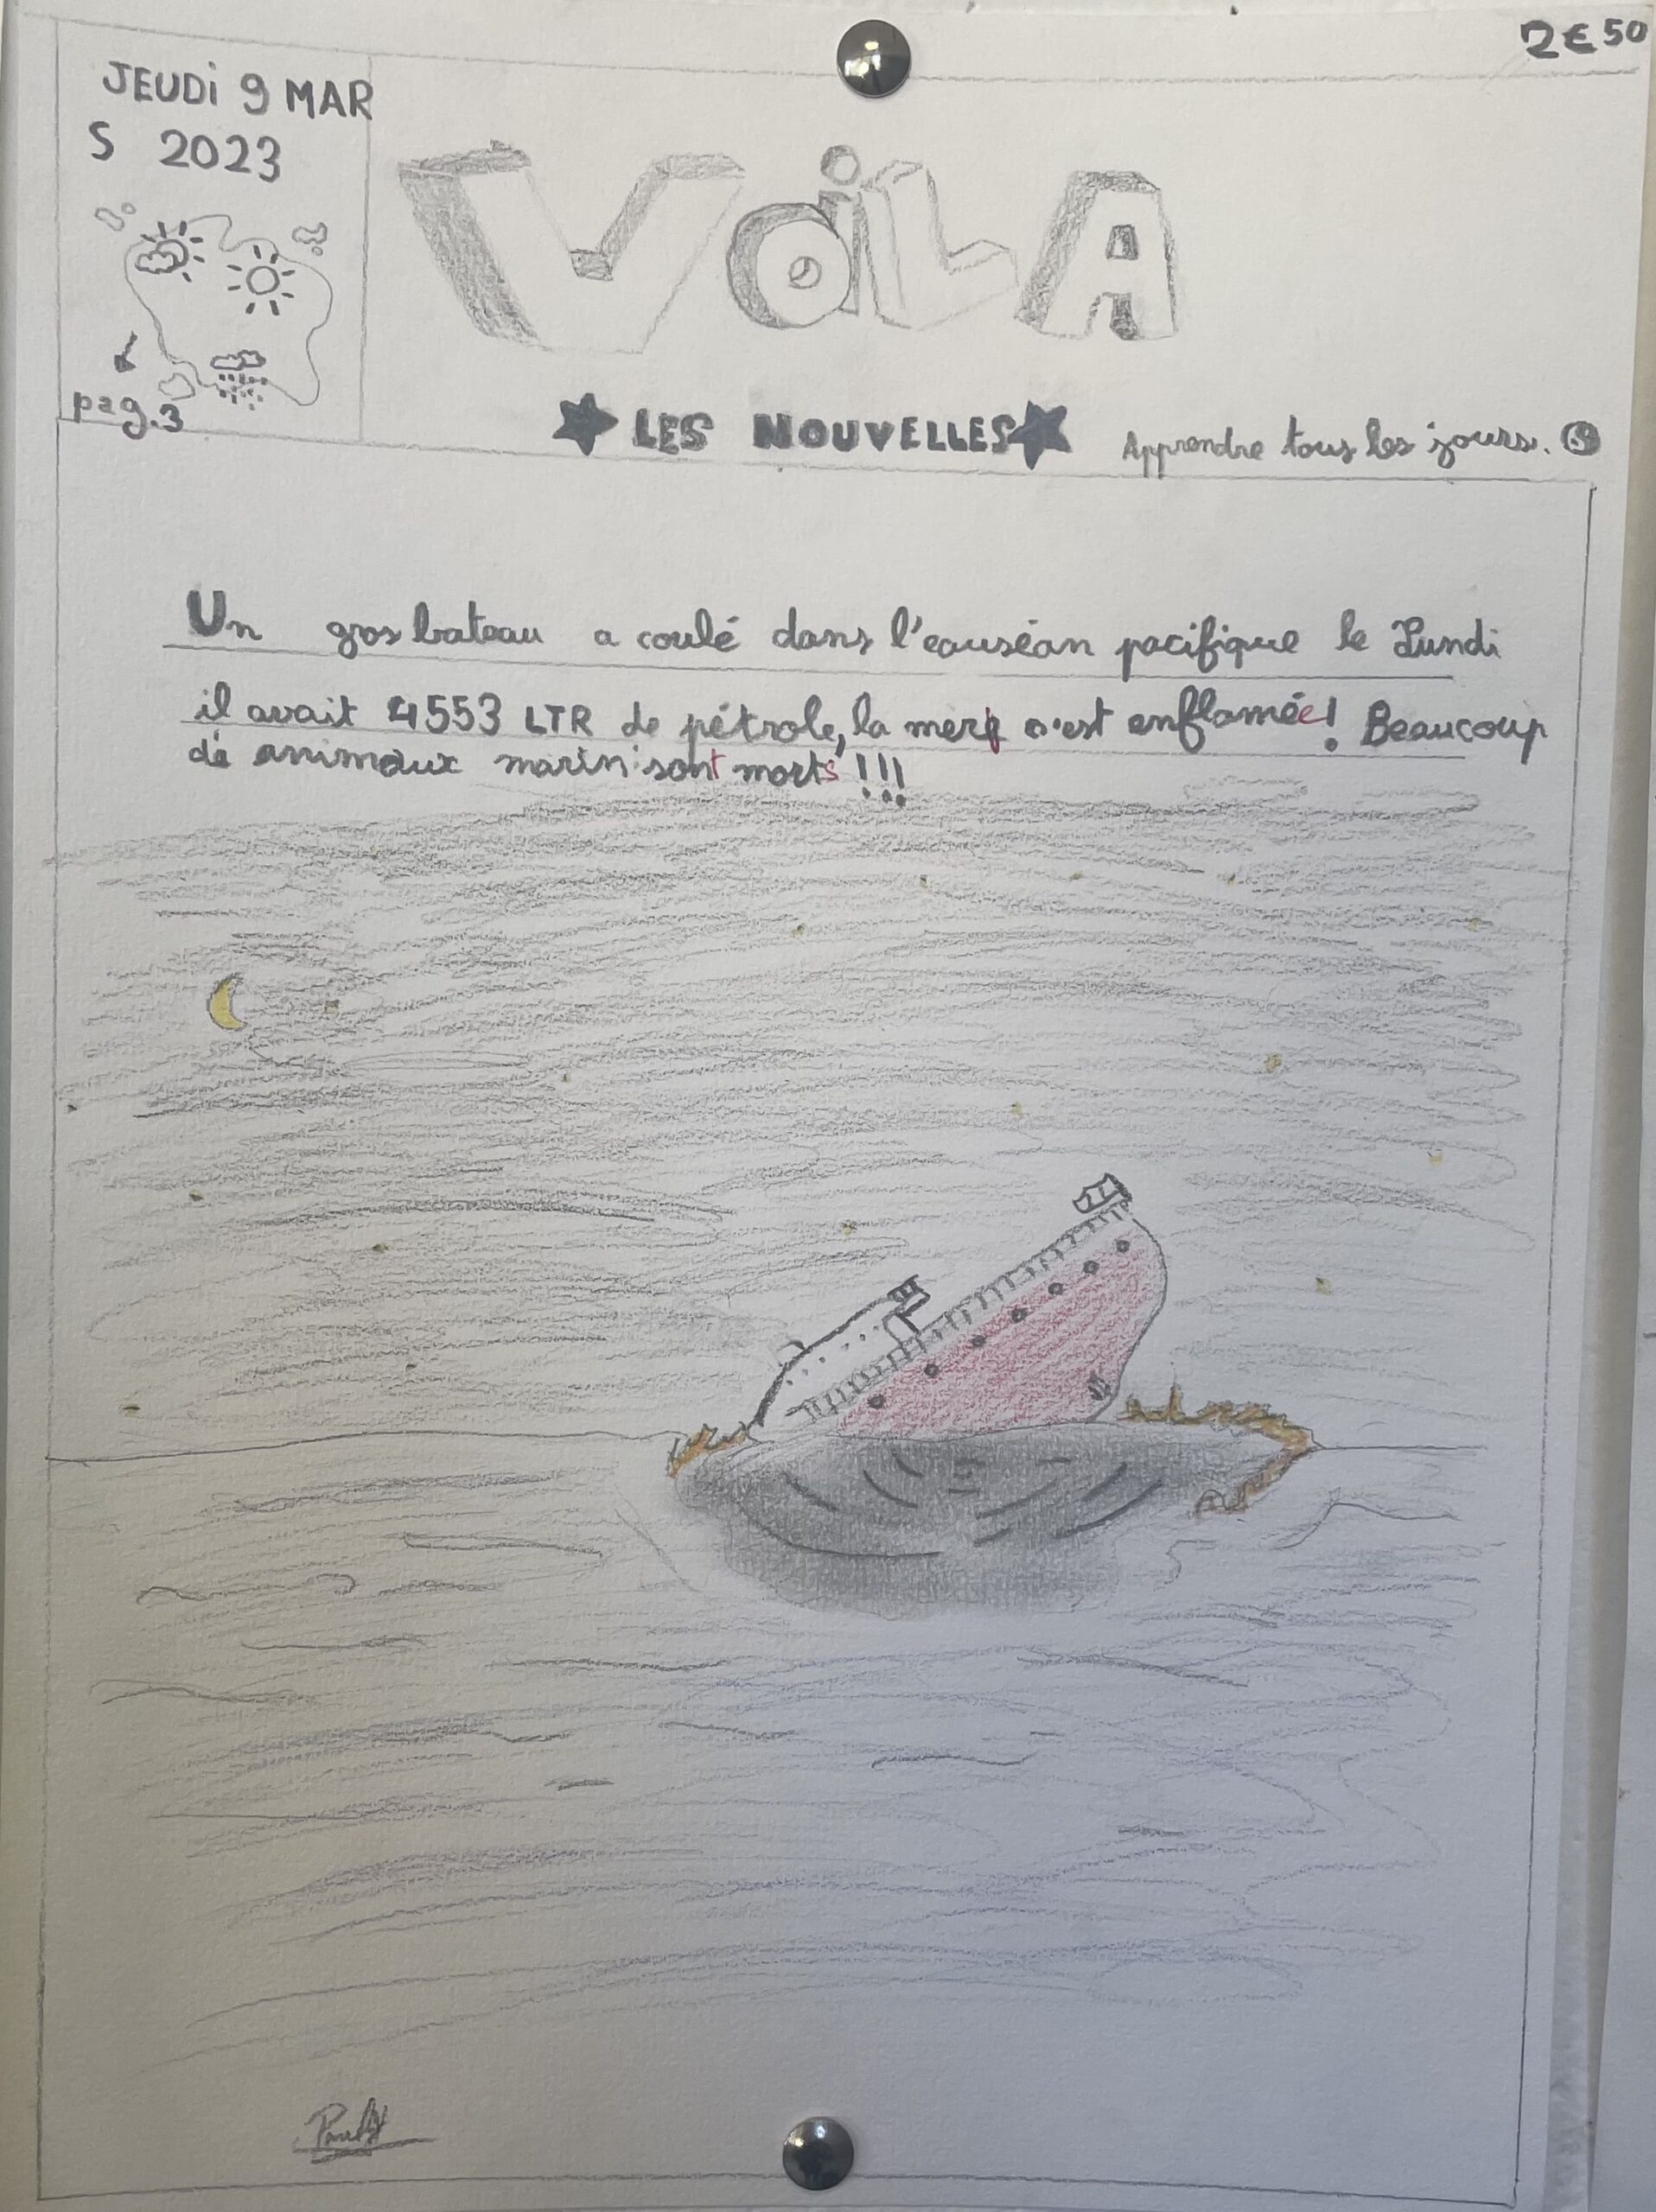 2€50
JEUDi 9 MAR
S 2023
pag.3
VOiLA
LES NOUVELLES
Apprendre tous les jours.
Un gros bateau a coulé dans l'eauséan pacifique le Lundi
il avait 4553 LTR de pétrole, la mer s'est enflamée! Beaucoup
de animaux marin sont morts !!!